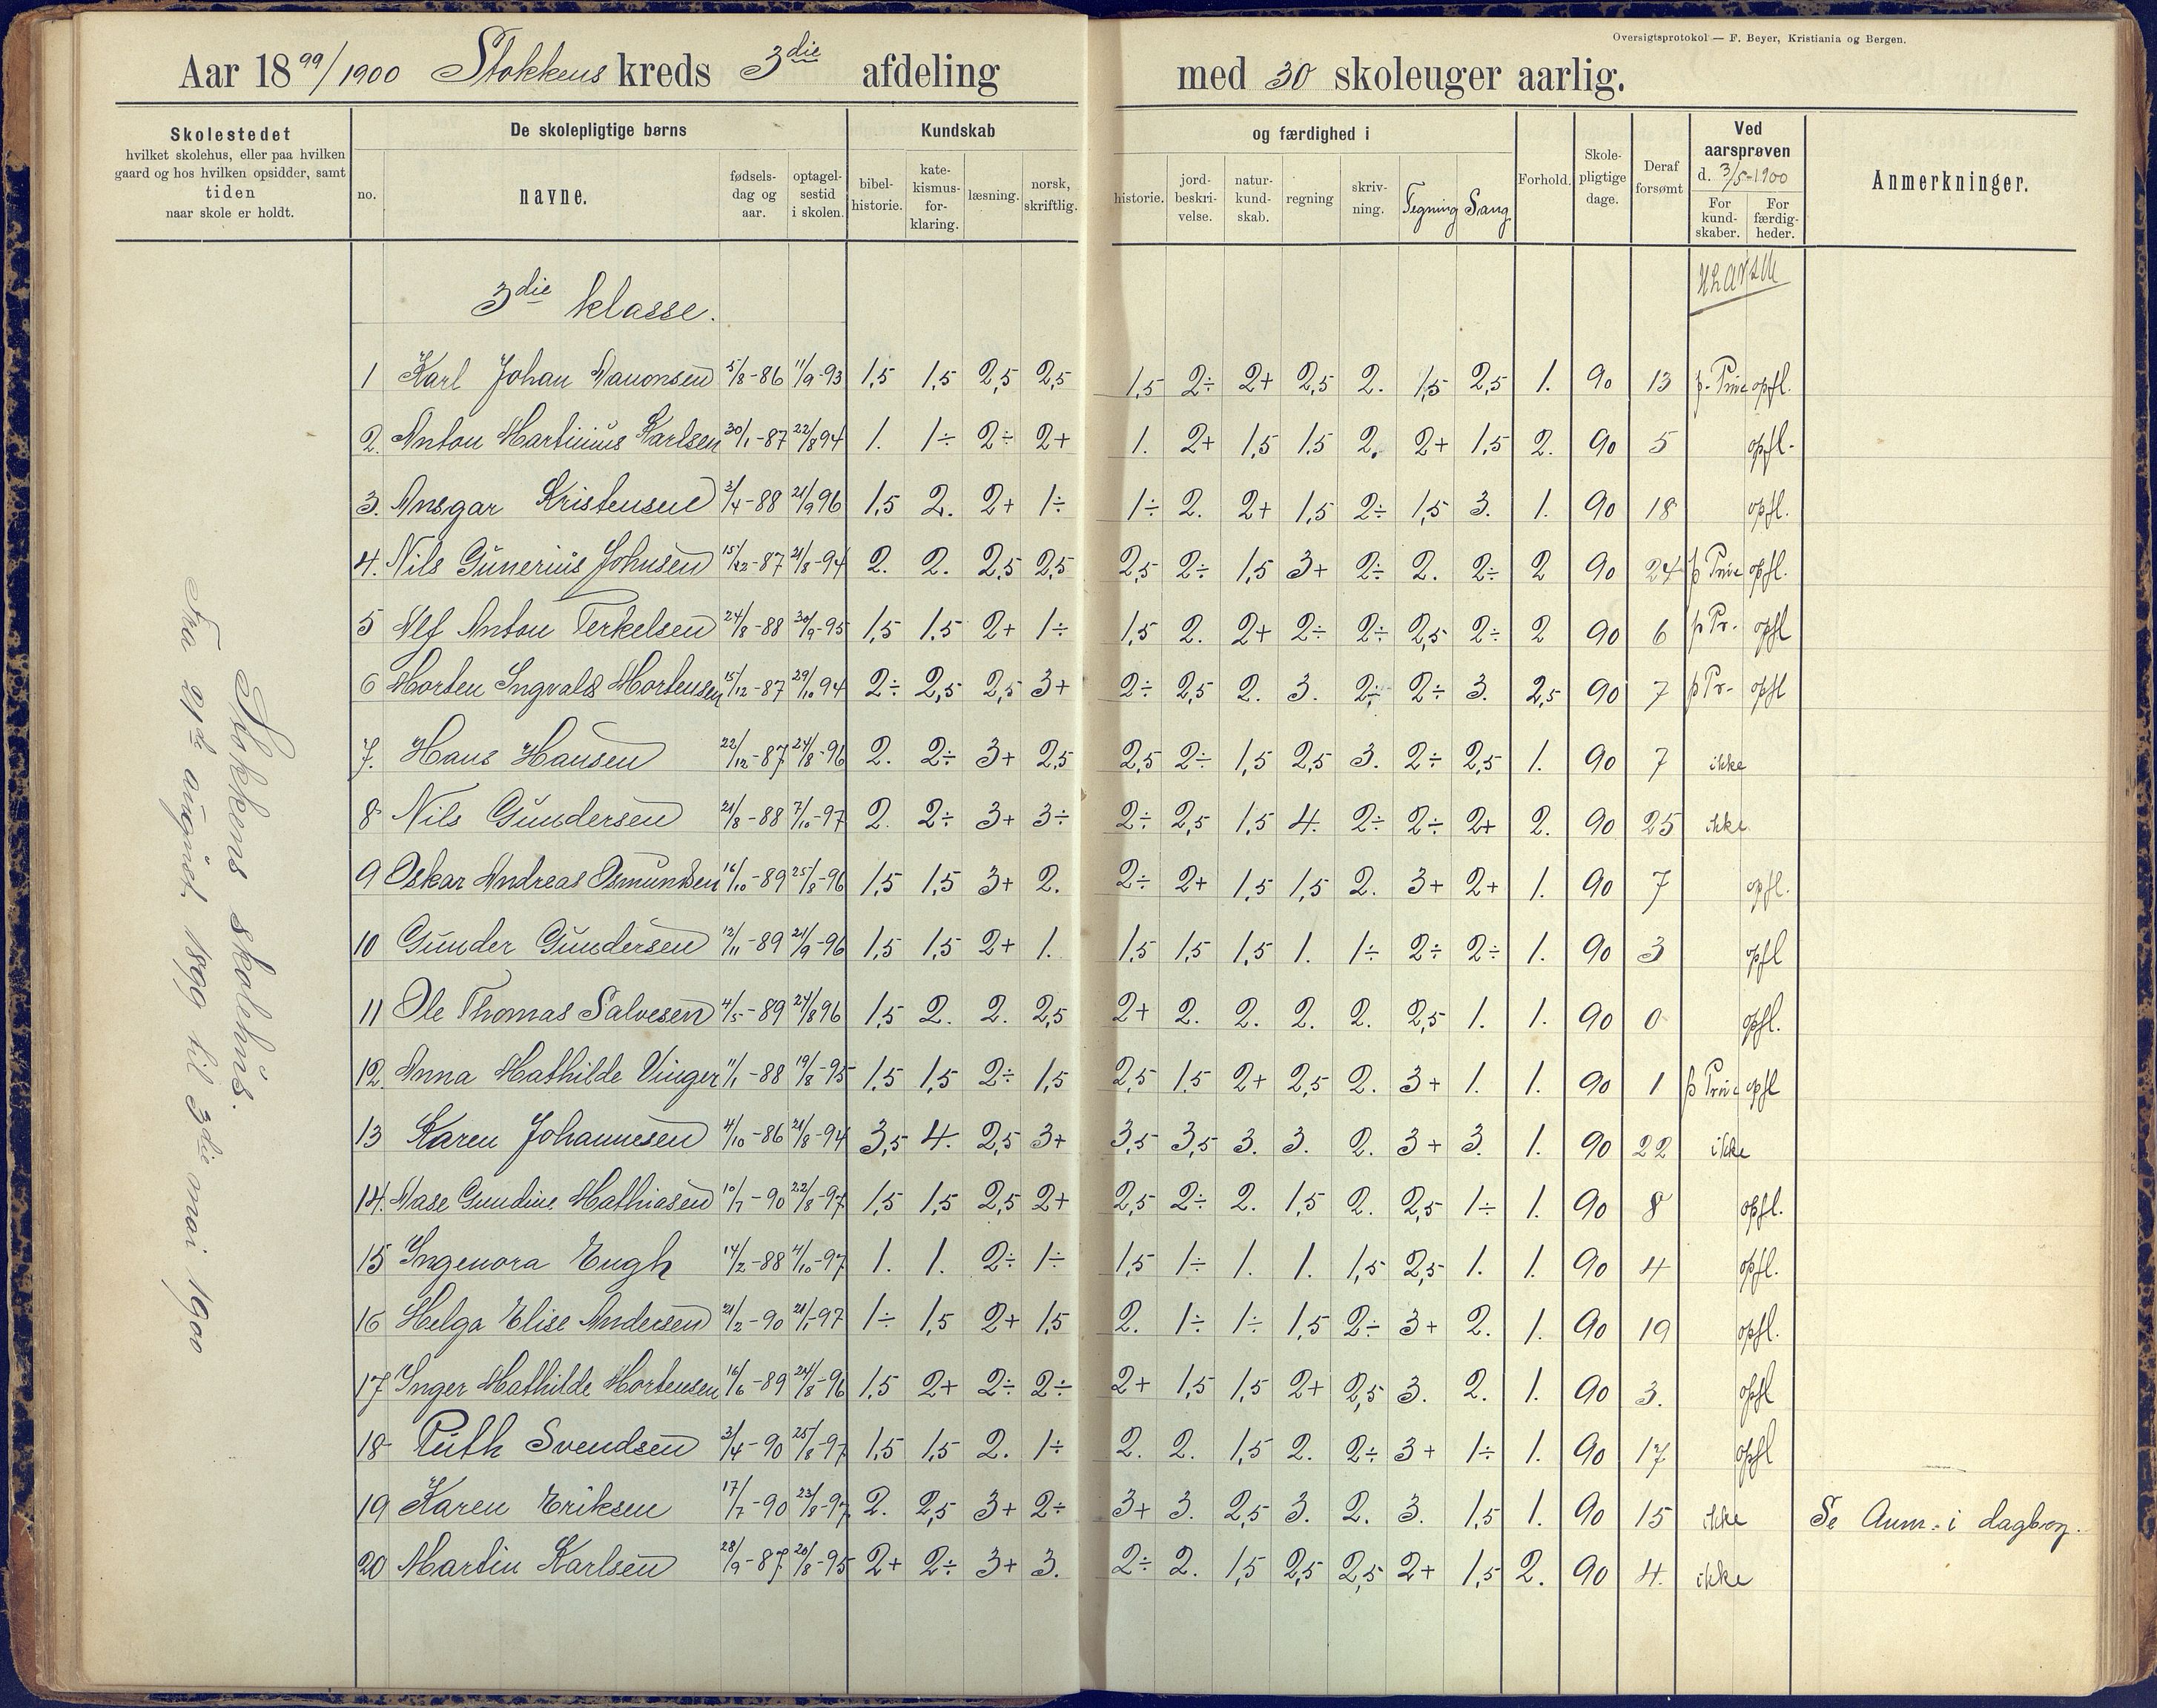 Oversigtsprotokol — F. Beyer, Kristiania og Bergen.
Aar 1899/1900 Stokkens kreds 3die afdeling med 30 skoleuger aarlig.
Skolestedet
hvilket skolehus, eller paa hvilken
gaard og hos hvilken opsidder, samt
tiden
naar skole er holdt.
De skolepligtige børns
no. navne. fødsels-dag og aar. optagel-sestid i skolen.
Kundskab og færdighed i
bibel-historie. kate-kismus-for-klaring. læsning. norsk, skriftlig. historie. jord-beskri-velse. natur-kund-skab. regning skriv-ning. Tegning Sang
Forhold. Skole-pligtige dage. Deraf forsømt
Ved aarsprøven d. 3/5-1900
For kund-skaber. For færdig-heder.
Anmerkninger.
Stokkens skolehus.
Fra 21de august 1899 til 3die mai 1900
3die klasse.
1 Karl Johan 5/8-86 11/9-93 1,5 1,5 2,5 2,5 1,5 2÷ 2+ 2,5 2. 1,5 2,5 1. 90 13 opfl.
2. Anton Martinius Karlsen 30/1-87 22/8 94 1. 1÷ 2÷ 2+ 1. 2+ 1,5 1.5 2. 2+ 1,5 2. 90 5 opfl.
3. Ansgar Kristensen 3/4-88 21/9 96 1,5 2. 2+ 1÷ 1÷ 2. 2+ 1,5 2÷ 1,5 3. 1. 90 18 opfl.
4. Nils Gunerius Johnsen 15/12-87 21/8-94 2. 2. 2,5 2,5 2,5 2÷ 1,5 3+ 2÷ 2. 2÷ 2 90 24 opfl.
5 Alf Anton Terkelsen 24/8-88 30/9-95 1,5 1,5 2+ 1÷ 1,5 2. 2+ 2÷ 2÷ 2,5 2÷ 2 90 6 p Pr. opfl
6 Morten Ingvald Mortensen 15/12-87 29/10 94 2÷ 2,5 2,5 3+ 2÷ 2,5 2. 3. 2÷ 2÷ 3. 2,5 90 7 p Pr. opfl
7. Hans Hansen 22/12-87 24/8-96 2. 2÷ 3+ 2,5 2,5 2÷ 1,5 2,5 3. 2÷ 2,5 1. 90 7 ikke
8 Nils Gundersen 21/8-88 7/10-97 2. 2÷ 3+ 3÷ 2÷ 2,5 1,5 4. 2÷ 2÷ 2+ 2. 90 25 ikke
9 Oskar Andreas Osmundsen 16/10-89 25/8-96 1,5 1,5 3+ 2. 2÷ 2+ 1,5 1,5 2. 3+ 2+ 1. 90 7 opfl.
10 Gunder Gundersen 12/11-89 21/9-96 1,5 1,5 2+ 1. 1,5 1,5 1,5 1. 1÷ 2÷ 2÷ 1. 90 3 opfl
11 Ole Thomas Salvesen 4/5-89 24/8 96 1,5 2. 2. 2,5 2+ 2. 2. 2. 2. 2,5 1. 1. 90 0 opfl.
12. Anna Mathilde Vinger 11/1-88 19/8-95 1,5 1,5 2÷ 1,5 2,5 1.5 2+ 2,5 2. 3+ 1. 1. 90 1 opfl
13 Karen Johannesen 4/10-86 21/8-94 3,5 4. 2,5 3+ 3,5 3,5 3. 3. 2. 3+ 3. 1. 90 22 ikke
14. Aase Gundine Mathiasen 10/7-90 22/8-97 1,5 1,5 2,5 2+ 2,5 2÷ 2. 1,5 2. 2,5 1÷ 1. 90 8 opfl.
15 Ingenora Engh 14/2-88 4/10-97 1. 1. 2÷ 1÷ 1,5 1÷ 1. 1. 1,5 2,5 1. 1. 90 4 opfl.
16 Helga Elise Andersen 21/2-90 21/1-97 1÷ 1,5 2+ 1,5 2. 1÷ 1÷ 1,5 2÷ 3+ 2. 1. 90 19 opfl.
17 Inger Mathilde Mortensen 16/6-89 24/8-96 1,5 2+ 2÷ 2÷ 2+ 1,5 1,5 2+ 2,5 3. 2. 1. 90 3. opfl
18 Ruth Svendsen 3/4-90 25/8-97 1,5 1,5 2. 1÷ 2. 2. 1,5 2. 2÷ 3+ 1÷ 1. 90 17 opfl
19 Karen Eriksen 17/7-90 23/8-97 2. 2,5 3+ 2÷ 3+ 3. 2,5 3. 2. 3. 1,5 1. 90 15 ikke Se Anm. i dagbog.
20 Martin Karlsen 28/9-87 20/8-95 2+ 2÷ 3+ 3. 2÷ 2. 1,5 2,5 2,5 2+ 1,5 2. 90 4. ikke